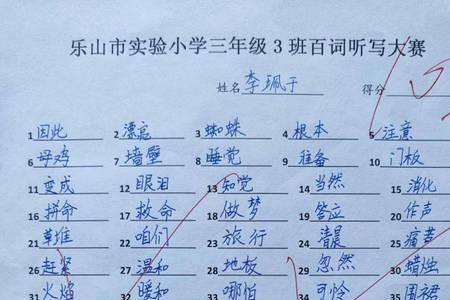 乐山市实验小学三年级3班百词听写大赛
姓名 李珮予 得分
1 因此 2 漂亮 3 蜘蛛 4 根本 5 注意
6 母鸡 7 墙壁 8 睡觉 9 准备 10 门板
11 变成 12 眼泪 13 知觉 14 当然 15 消化
16 拼命 17 救命 18 做梦 19 答应 20 作声
21 草堆 22 咱们 23 旅行 24 清晨 25 痛苦
26 赶紧 27 温和 28 地板 29 忽然 30 蜡烛
31 火焰 32 暖和 33 哪怕 34 可怜 35 围裙